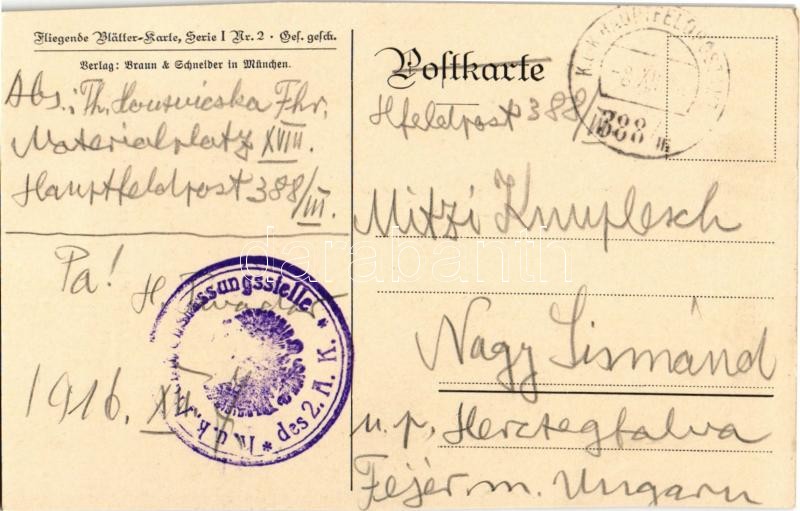 Fliegende Blätter-Karte, Serie I Nr. 2 · Ges. gesch.
Verlag: Braun & Schneider in München.
Abs.: Th. Fhr.
Materialplatz XVIII.
Hauptfeldpost 388/III.
Pa!
H.
1916. XII
K.u.k. des 2. A. K.
Postkarte
Hfeldpost 388/III
K.u.K. HAUPTFELDPOSTAMT
388 III
Mitzi Knuplesch
Nagy Sismánd
u. p. Herczegfalva
Fejér m. Ungarn
darabanth